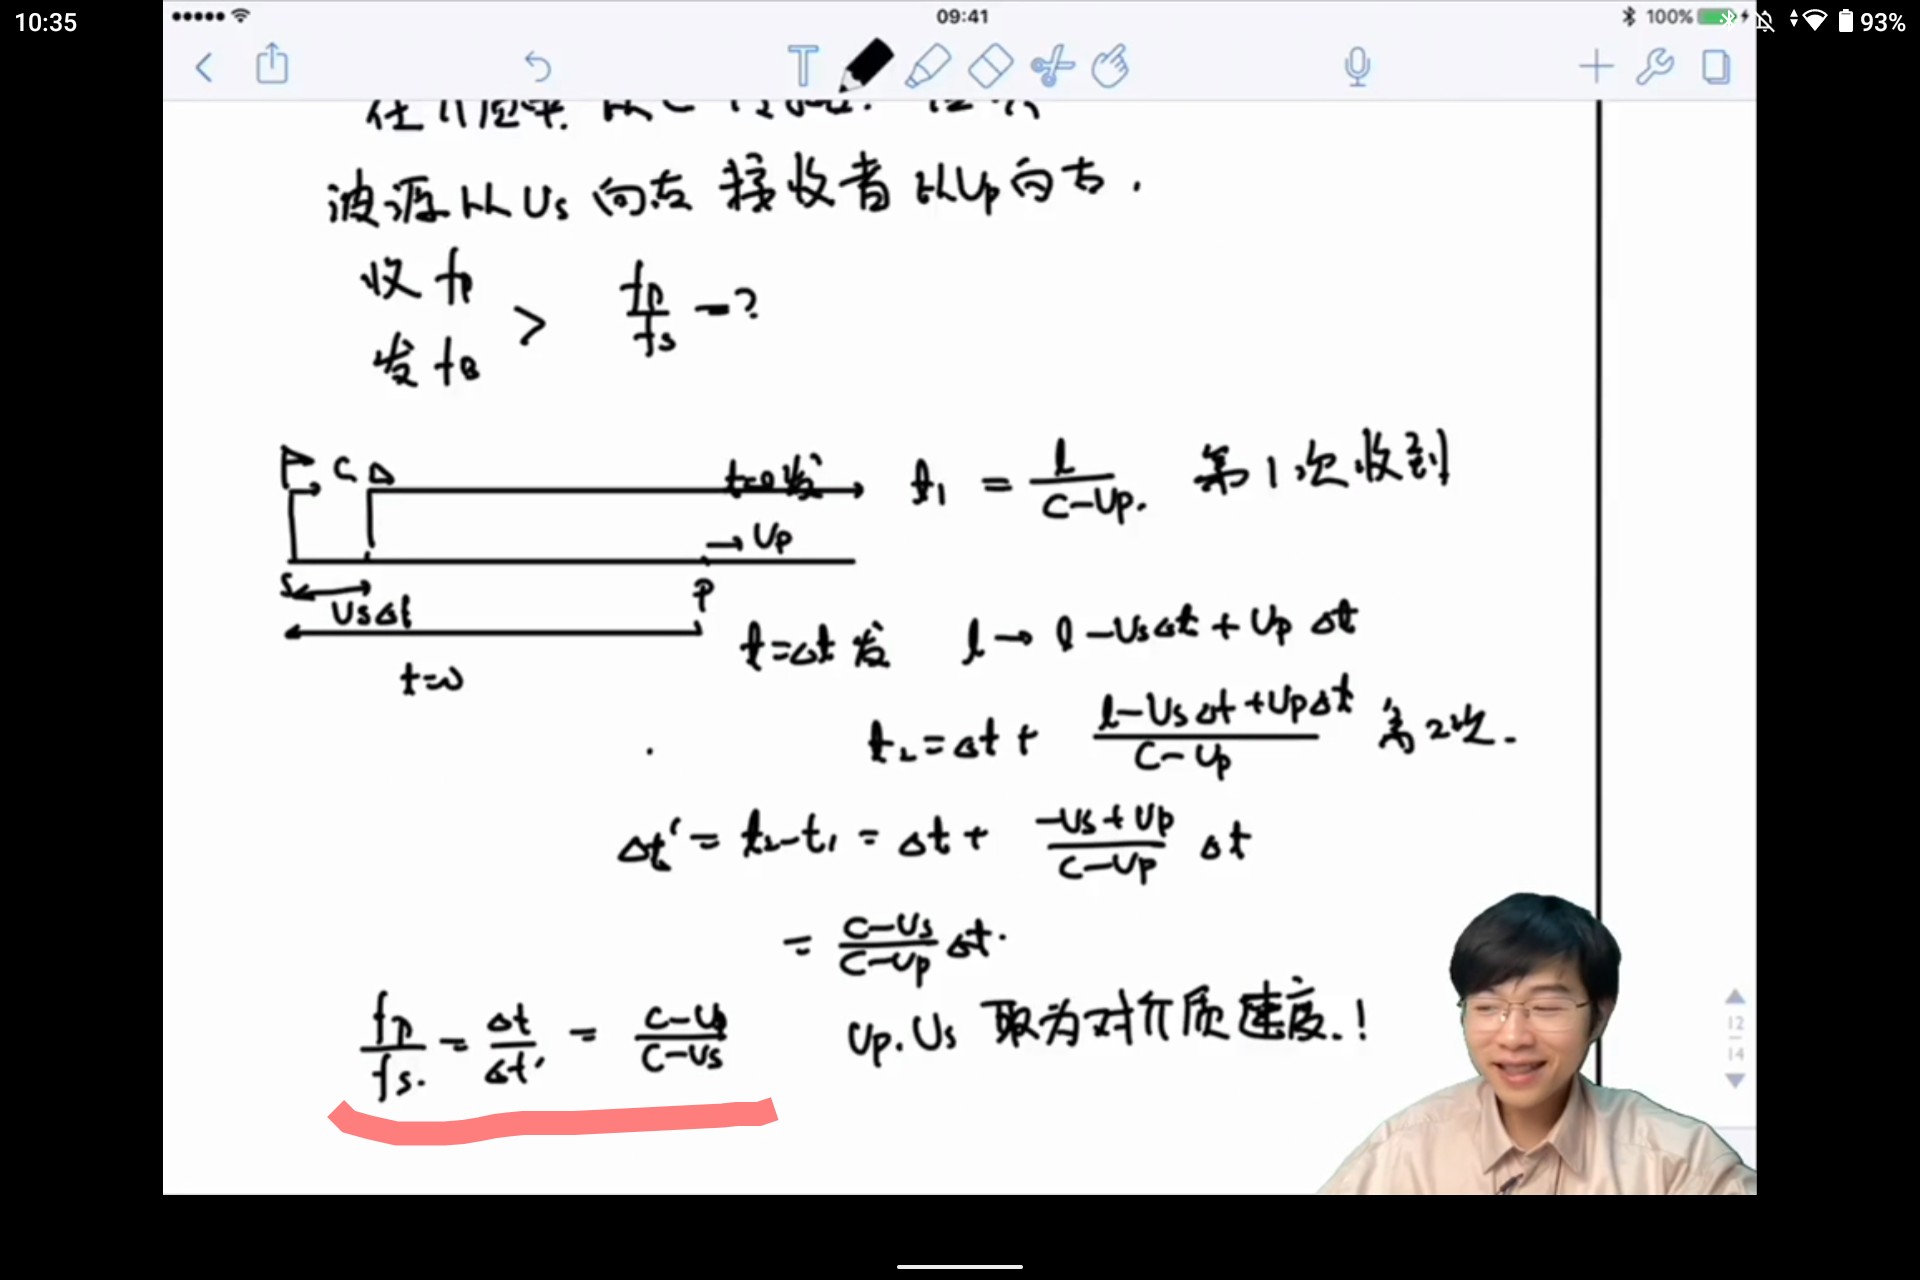 10:35
09:41
100%
93%
T
波源以Us向右 接收者以Up向右.
收 fp
发 fs > fp/fs = ?
C
t=0发
t₁ = l/(C-Up). 第1次收到
→ Up
S
P
UsΔt
t=Δt 发 l → l-UsΔt+UpΔt
t=0
t₂=Δt+ (l-UsΔt+UpΔt)/(C-Up) 第2次.
Δt' = t₂-t₁ = Δt + (-Us+Up)/(C-Up) Δt
= (C-Us)/(C-Up) Δt.
fp/fs. = Δt/Δt' = (C-Up)/(C-Us) Up. Us 取为对介质速度.!
12
14